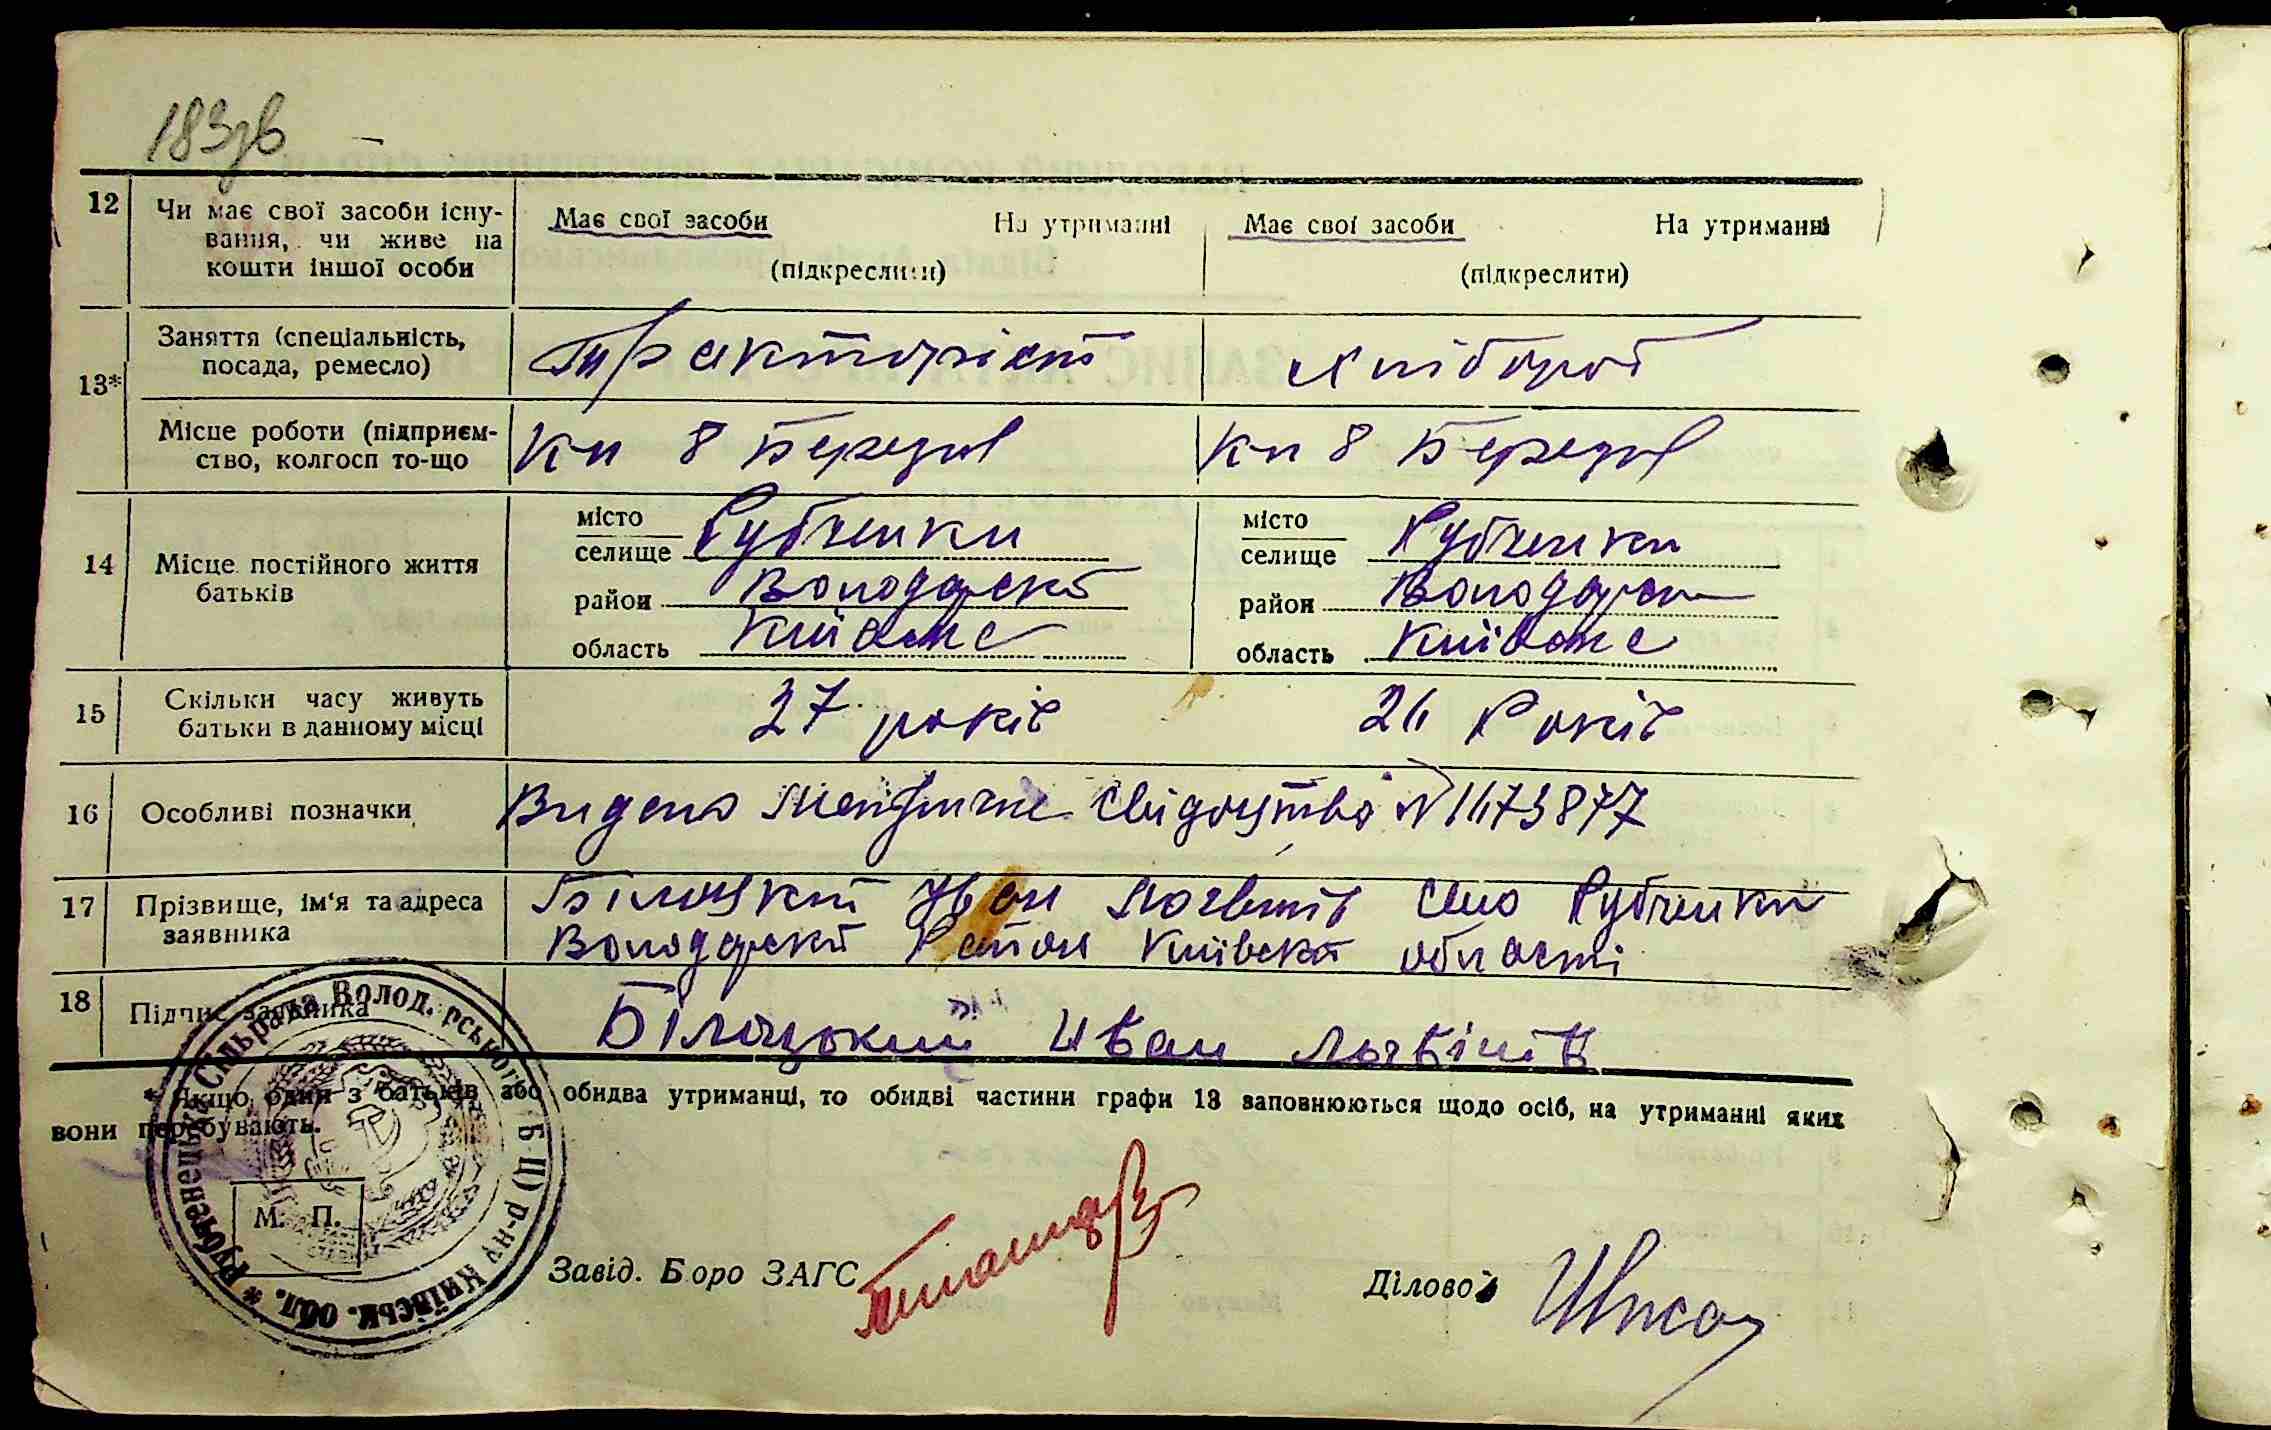 183зв
12 Чи має свої засоби існу-
вання, чи живе на
кошти іншої особи
Має свої засоби На утриманні
(підкреслити)
Має свої засоби На утриманні
(підкреслити)
13*
Заняття (спеціальність,
посада, ремесло)
Тракторіст
Хлібороб
Місце роботи (підприєм-
ство, колгосп то-що
Кп 8 Березня
Кп 8 Березня
14 Місце постійного життя
батьків
місто
селище Рубченки
район Володарскй
область Київске
місто
селище Рубченки
район Володарск
область Київске
15 Скільки часу живуть
батьки в данному місці
27 років
26 Років
16 Особливі позначки
Видено Свідоцтво N 1673877
17 Прізвище, ім'я та адреса
заявника
Білоцкий Іван Логвинів Село Рубченки
Володарскй Район Київскй області
18 Підпис заявника
Білоцький Иван Логвінів
* Якщо один з батьків або обидва утриманці, то обидві частини графи 13 заповнюються щодо осіб, на утриманні яких
вони перебувають.
* Рубченецька Сільрада Волод. рського (Б Ц) р-ну Київськ. обл.
М. П.
Завід. Бюро ЗАГС
Діловод